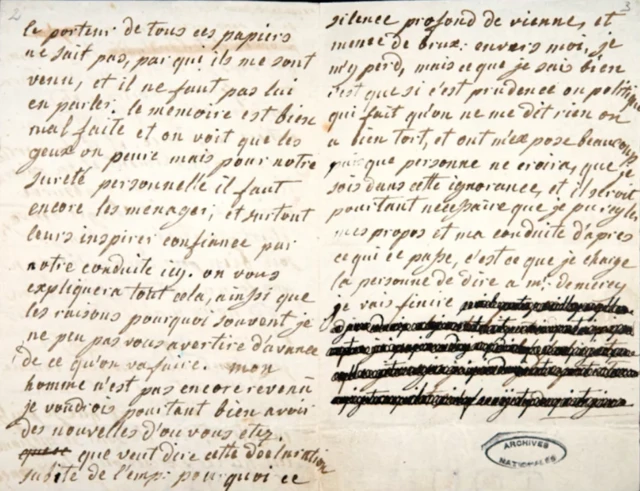 2
le porteur de tous ces papiers
ne sait pas, par qui ils me sont
venu, et il ne faut pas lui
en parler. le memoire est bien
mal faite et on voit que les
geux on peure mais pour notre
sureté personnelle il faut
encore les menager, et surtout
leurs inspirer confiance par
notre conduite icy. on vous
expliquera tout cela, ainsi que
les raisons pourquoi souvent je
ne peu pas vous avertire d'avance
de ce qu'on va faire. mon
homme n'est pas encore revenu
je voudrois pourtant bien avoir
des nouvelles d'ou vous etez.
que veut dire cette declaration
subite de l'emp: pourquoi ce
3
silence profond de vienne, et
meme de brux: envers moi, je
m'y perd, mais ce que je sais bien
c'est que si c'est prudence ou politique
qui fait qu'on ne me dit rien on
a bien tort, et ont m'expose beaucoup
que personne ne croira, que je
sois dans cette ignorance, et il seroit
pourtant necessaire que je puis
mes propos et ma conduite d'apres
ce qui ce passe, c'est ce que je charge
la personne de dire a mr. demercy
je vais finire
ARCHIVES
NATIONALES